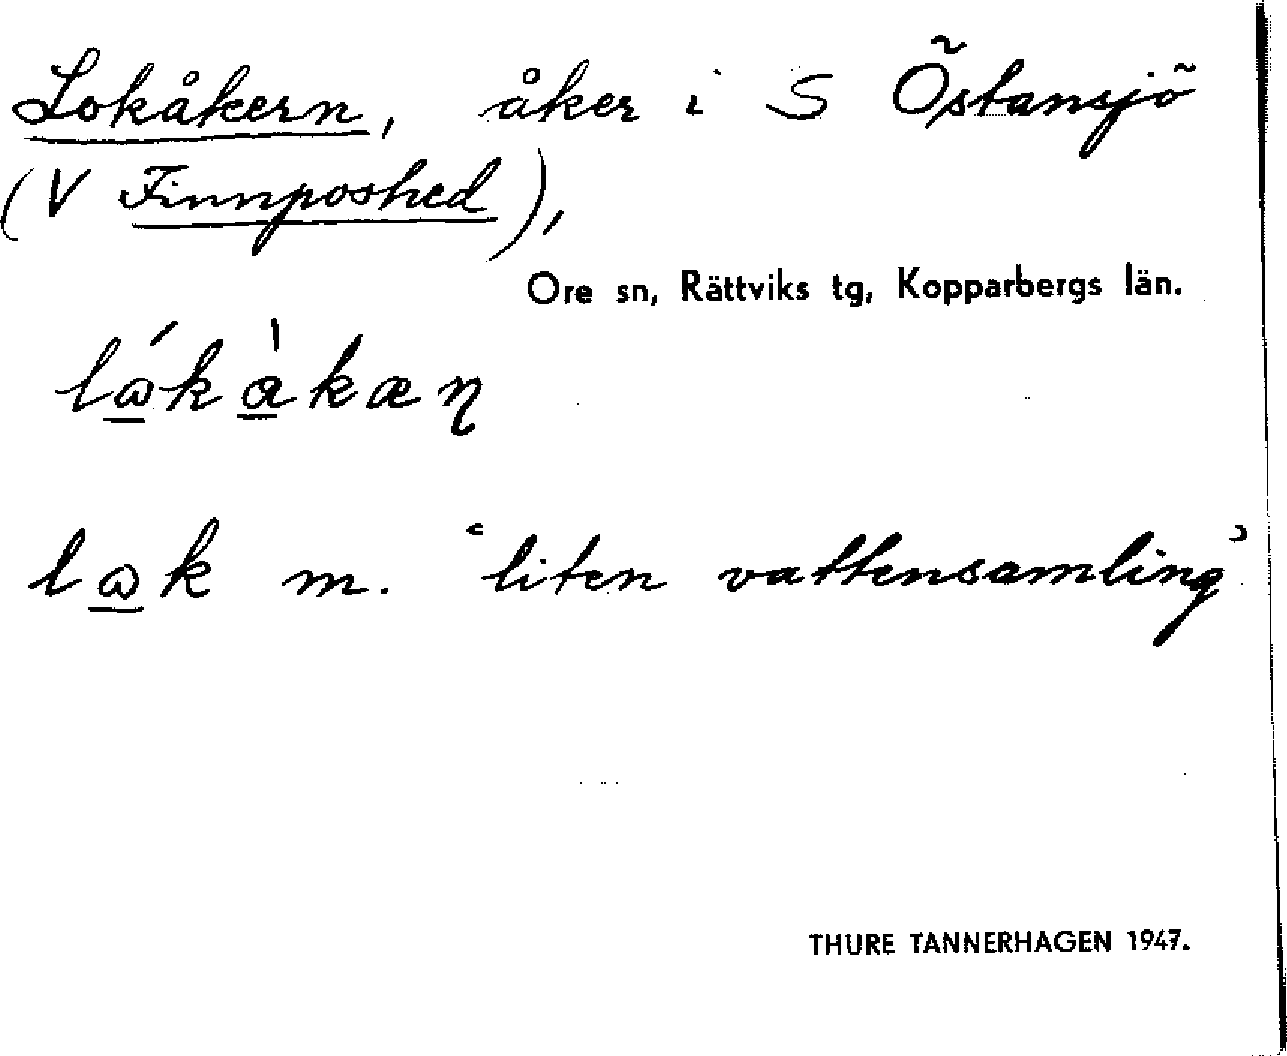 Lokåkern, åker i S Östansjö
(V Finnposhed),
Ore sn, Rättviks tg, Kopparbergs län.
m. ‘liten vattensamling’
THURE TANNERHAGEN 1947.